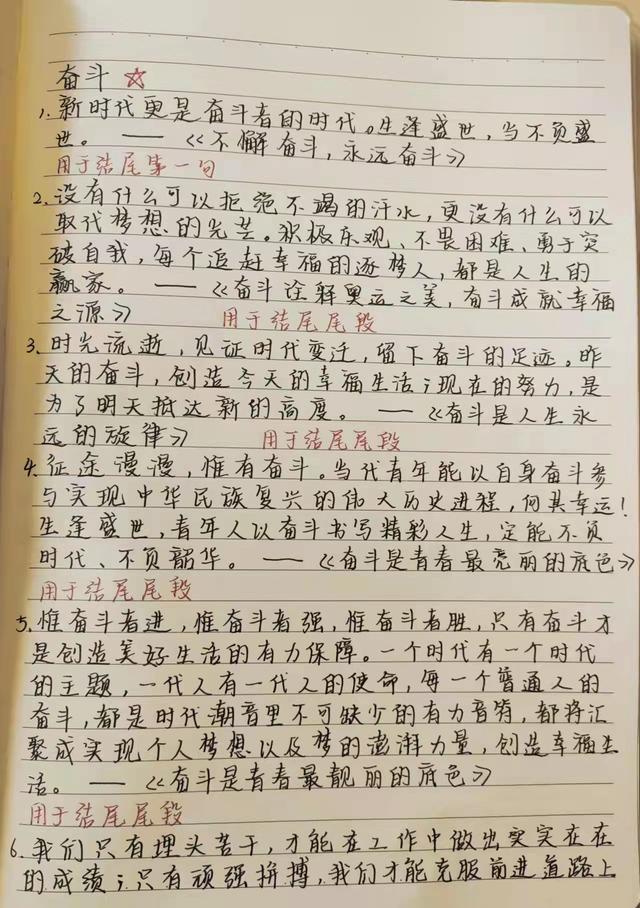 奋斗 ☆
1、新时代更是奋斗者的时代。生逢盛世，当不负盛
世。 —— 《不懈奋斗，永远奋斗》
用于结尾第一句
2、没有什么可以拒绝不竭的汗水，更没有什么可以
取代梦想的光芒。积极乐观、不畏困难、勇于突
破自我，每个追赶幸福的逐梦人，都是人生的
赢家。 —— 《奋斗诠释奥运之美，奋斗成就幸福
之源》 用于结尾尾段
3、时光流逝，见证时代变迁，留下奋斗的足迹。昨
天的奋斗，创造今天的幸福生活；现在的努力，是
为了明天抵达新的高度。 —— 《奋斗是人生永
远的旋律》 用于结尾尾段
4、征途漫漫，惟有奋斗。当代青年能以自身奋斗参
与实现中华民族复兴的伟大历史进程，何其幸运！
生逢盛世，青年人以奋斗书写精彩人生，定能不负
时代、不负韶华。 —— 《奋斗是青春最亮丽的底色》
用于结尾尾段
5、惟奋斗者进，惟奋斗者强，惟奋斗者胜，只有奋斗才
是创造美好生活的有力保障。一个时代有一个时代
的主题，一代人有一代人的使命，每一个普通人的
奋斗，都是时代潮音里不可缺少的有力音符，都将汇
聚成实现个人梦想以及梦的澎湃力量，创造幸福生
活。 —— 《奋斗是青春最靓丽的底色》
用于结尾尾段
6、我们只有埋头苦干，才能在工作中做出实实在在
的成绩；只有顽强拼搏，我们才能克服前进道路上